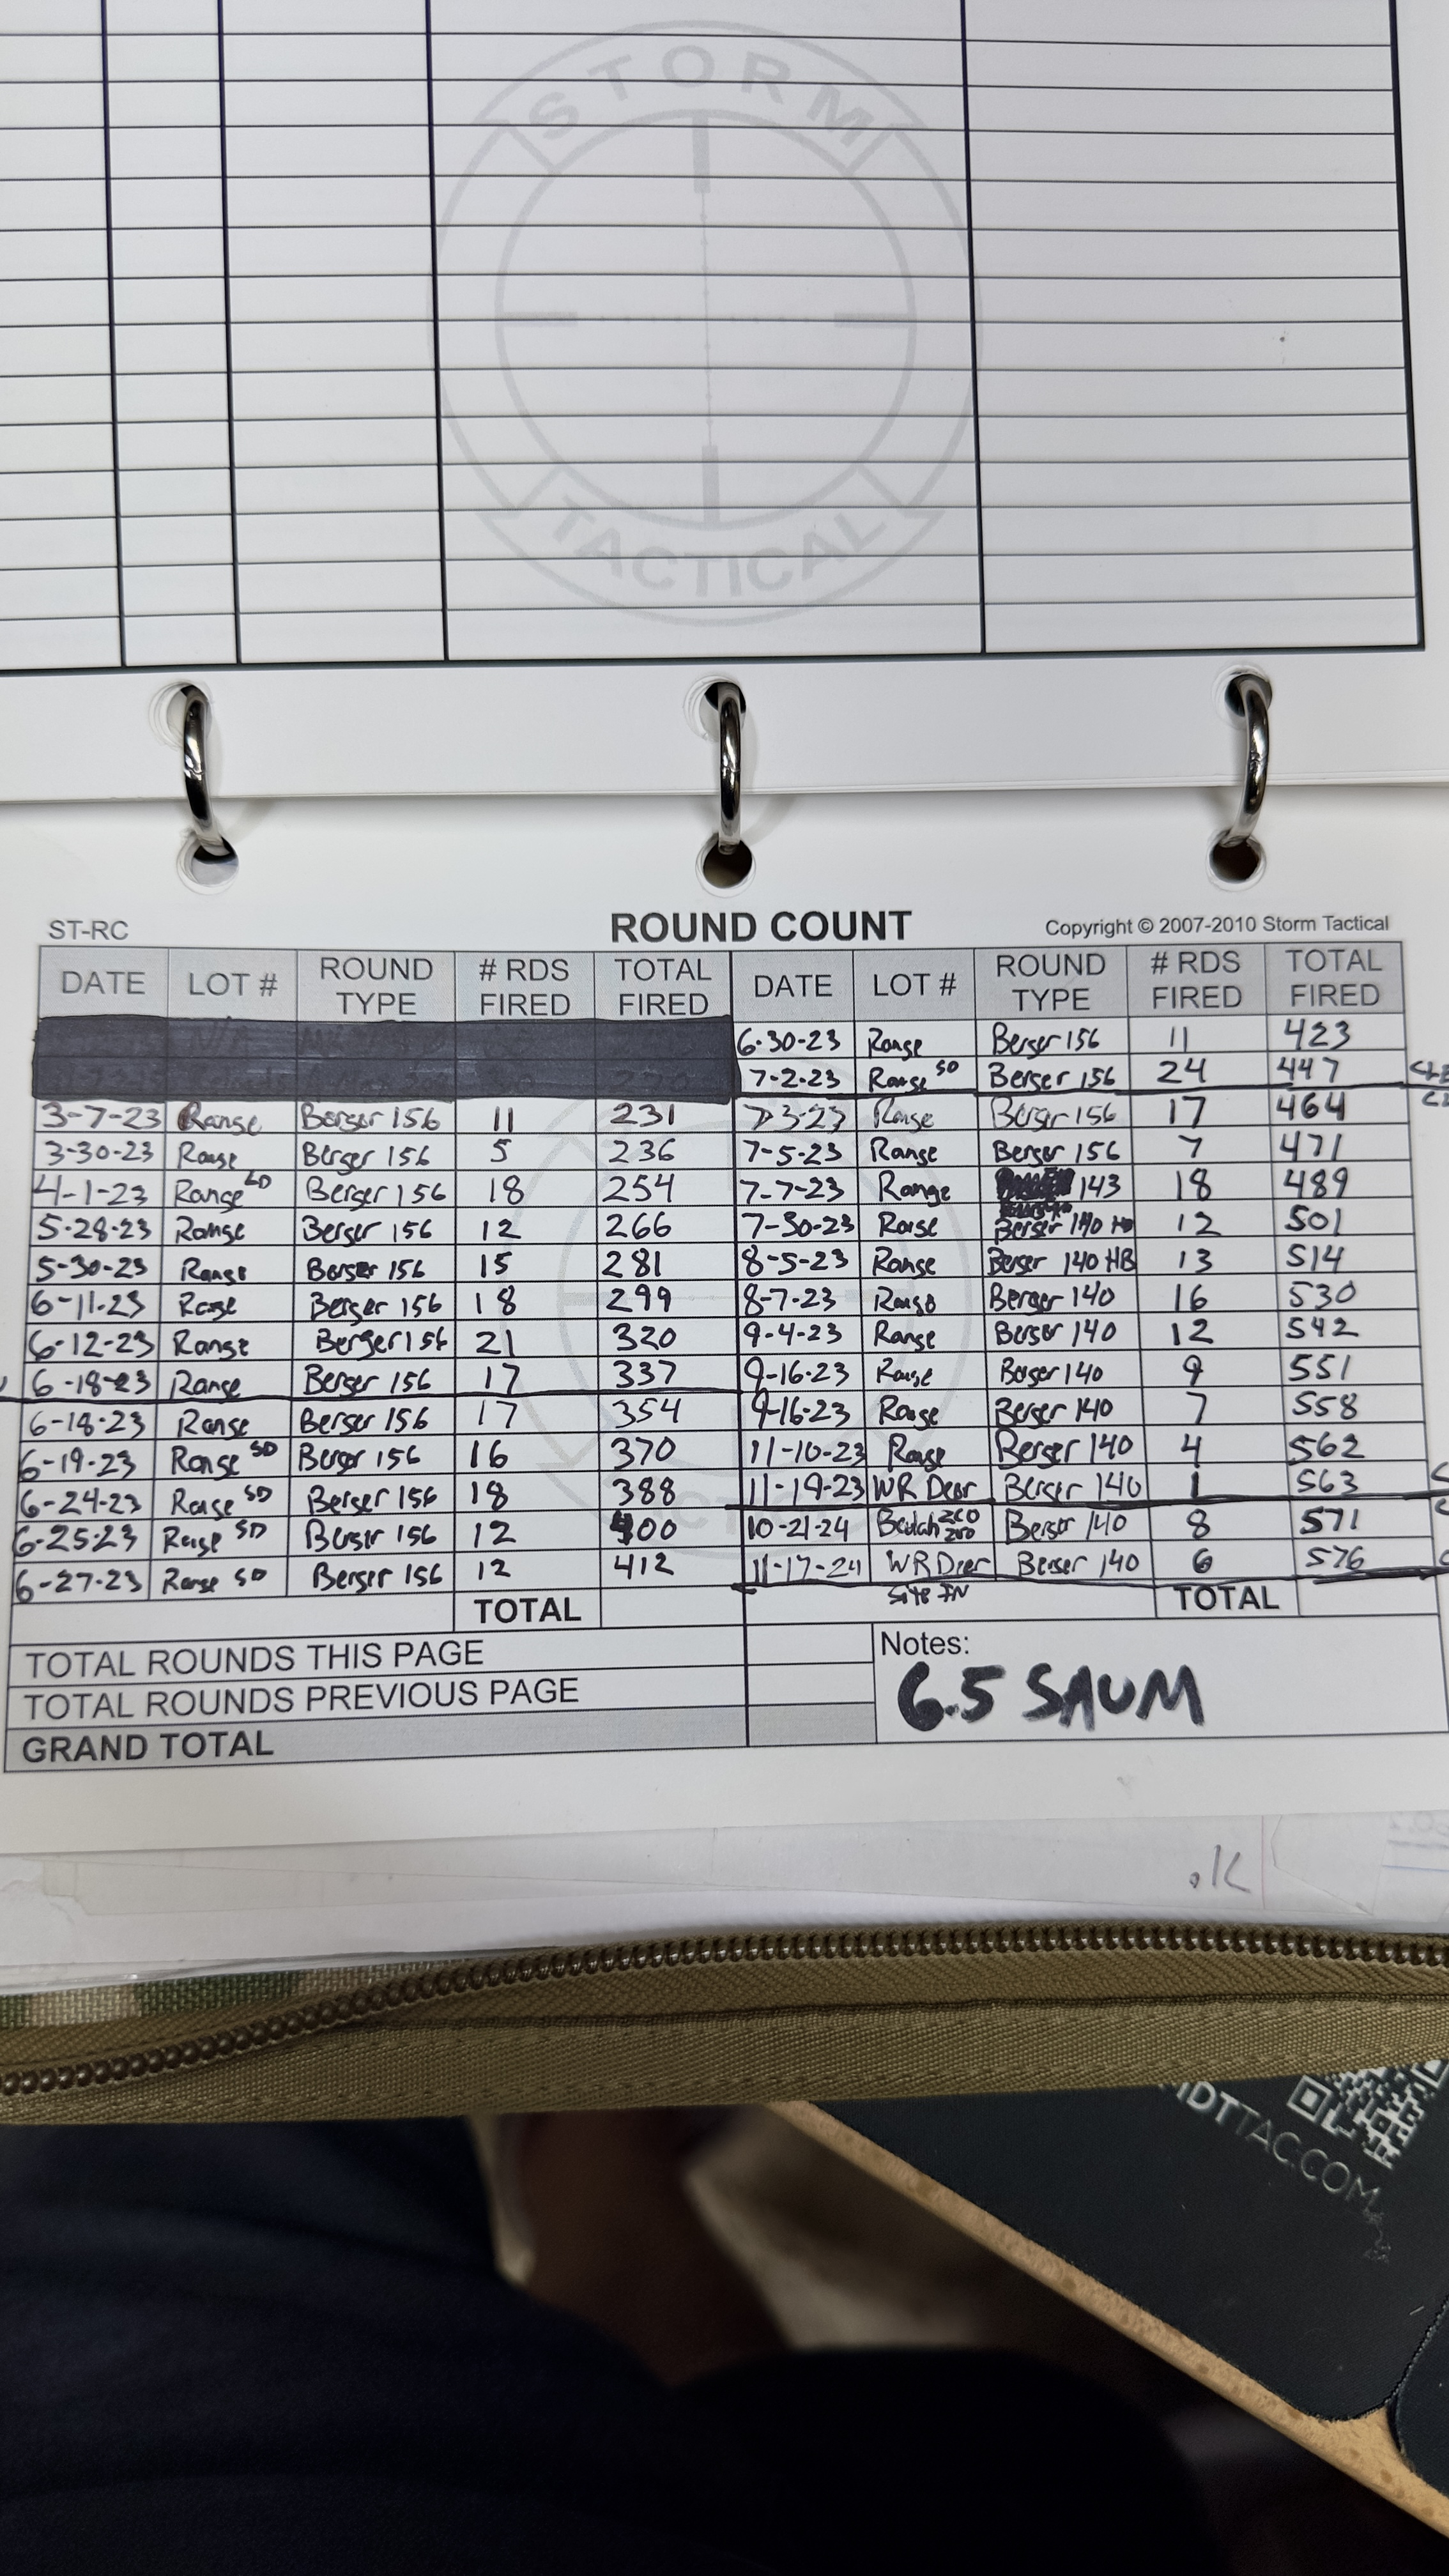 STORM
TACTICAL
ST-RC ROUND COUNT Copyright © 2007-2010 Storm Tactical
DATE LOT # ROUND TYPE # RDS FIRED TOTAL FIRED DATE LOT # ROUND TYPE # RDS FIRED TOTAL FIRED
6-30-23 Range Berger 156 11 423
7-2-23 Range SD Berger 156 24 447
3-7-23 Range Berger 156 11 231 7-3-23 Range Berger 156 17 464
3-30-23 Range Berger 156 5 236 7-5-23 Range Berger 156 7 471
4-1-23 Range LD Berger 156 18 254 7-7-23 Range 143 18 489
5-28-23 Range Berger 156 12 266 7-30-23 Range Berger 140 12 501
5-30-23 Range Berger 156 15 281 8-5-23 Range Berger 140 HB 13 514
6-11-23 Range Berger 156 18 299 8-7-23 Range Berger 140 16 530
6-12-23 Range Berger 156 21 320 9-4-23 Range Berger 140 12 542
6-18-23 Range Berger 156 17 337 9-16-23 Range Berger 140 9 551
6-18-23 Range Berger 156 17 354 9-16-23 Range Berger 140 7 558
6-19-23 Range SD Berger 156 16 370 11-10-23 Range Berger 140 4 562
6-24-23 Range SD Berger 156 18 388 11-19-23 WR Deer Berger 140 1 563
6-25-23 Range SD Berger 156 12 400 10-21-24 Beulah Berger 140 8 571
6-27-23 Range SD Berger 156 12 412 11-17-24 WR Deer Berger 140 6 576
Site IN
TOTAL TOTAL
TOTAL ROUNDS THIS PAGE
TOTAL ROUNDS PREVIOUS PAGE
GRAND TOTAL
Notes:
6.5 SAUM
.K
TAC.COM